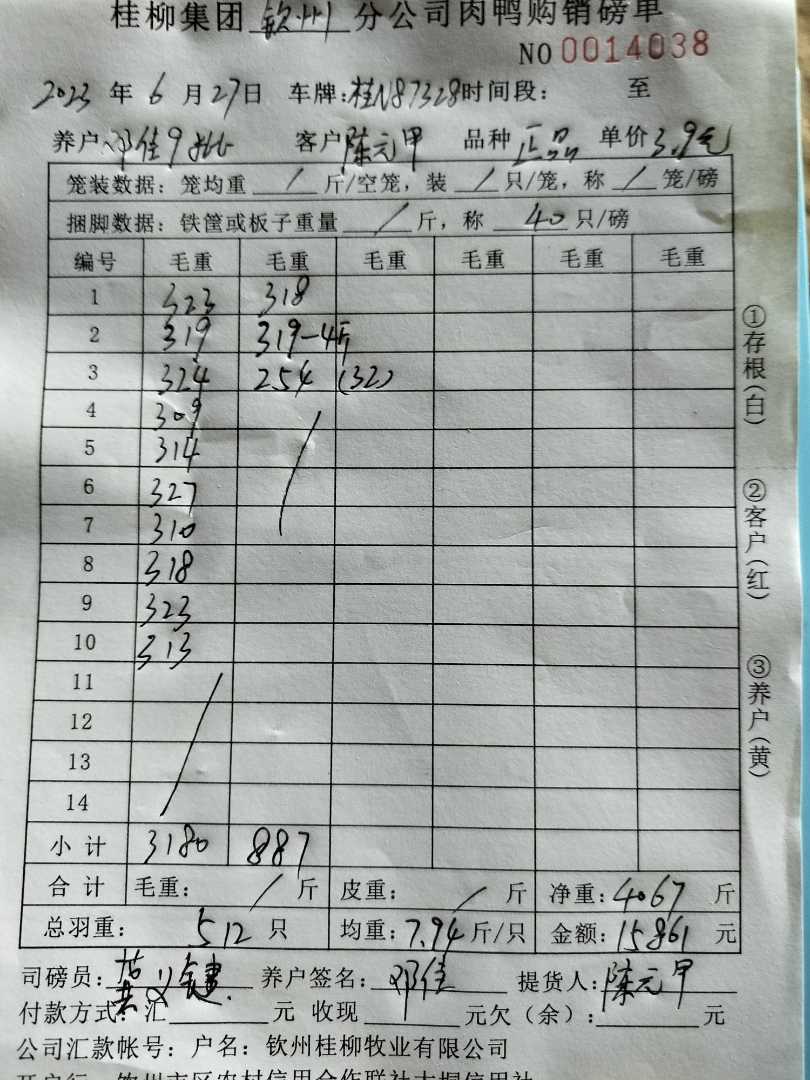 桂柳集团 钦州 分公司肉鸭购销磅单
NO 0014038
2023 年 6 月 27 日 车牌:桂N87328 时间段: 至
养户 邓佳9批 客户 陈元甲 品种 正品 单价 3.9元
笼装数据:笼均重 / 斤/空笼,装 / 只/笼,称 / 笼/磅
捆脚数据:铁筐或板子重量 / 斤,称 40 只/磅
编号 毛重 毛重 毛重 毛重 毛重 毛重
1 323 318
2 319 319-4斤
3 324 254 (32)
4 309
5 314
6 327
7 310
8 318
9 323
10 313
11
12
13
14
小计 3180 887
合计 毛重: / 斤 皮重: / 斤 净重:4067 斤
总羽重: 512 只 均重:7.94 斤/只 金额:15861 元
司磅员: 黄义健 养户签名: 邓佳 提货人: 陈元甲
付款方式:汇 元 收现 元欠(余): 元
公司汇款帐号:户名:钦州桂柳牧业有限公司
开户行:钦州市区农村信用合作联社大垌信用社
①存根(白)
②客户(红)
③养户(黄)